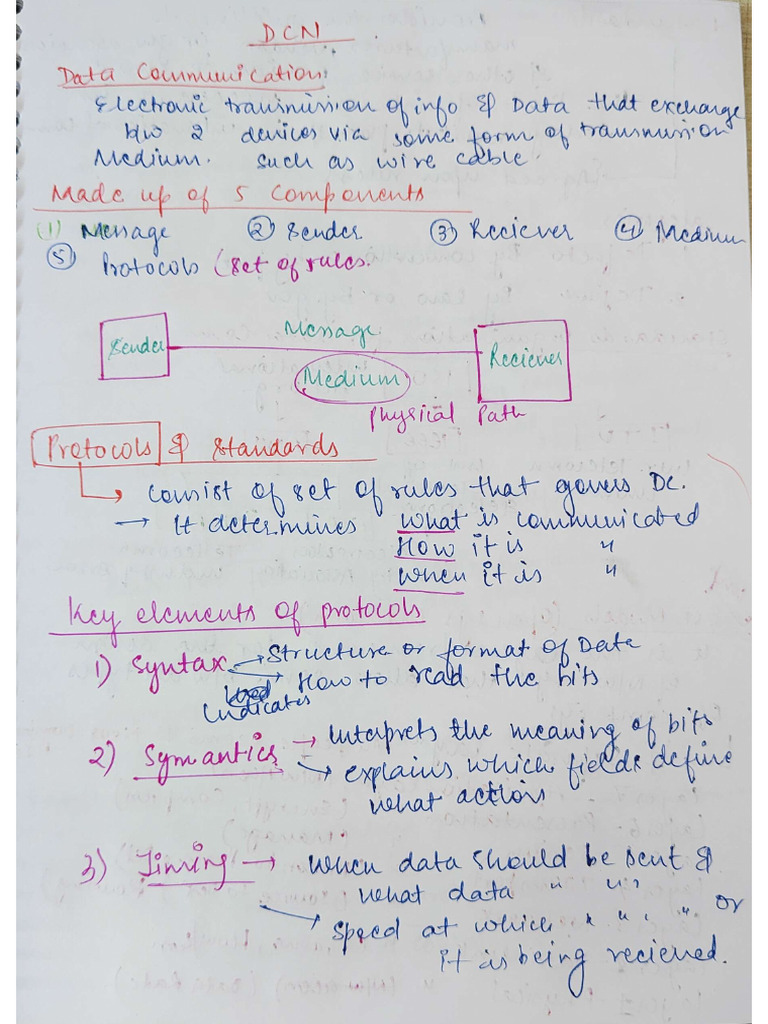 DCN
Data Communication
Electronic transmission of info & Data that exchange
b/w 2 devices via some form of transmission
Medium. Such as wire cable.
Made up of 5 components
(1) Message (2) Sender (3) Reciever (4) Medium
(5) Protocols (set of rules.
Message
Sender
Reciever
Medium
Physical Path
Protocols & Standards
→ Consist of set of rules that govers DC.
→ It determines what is communicated
How it is "
When it is "
Key elements of protocols
1) Syntax → Structure or format of Data
→ How to read the bits
Indicates
2) Symantics → Interprets the meaning of bits
→ explains which fields define
what actions
3) Timing → When data should be sent &
what data " " "
→ Speed at which " " " " or
it is being recieved.